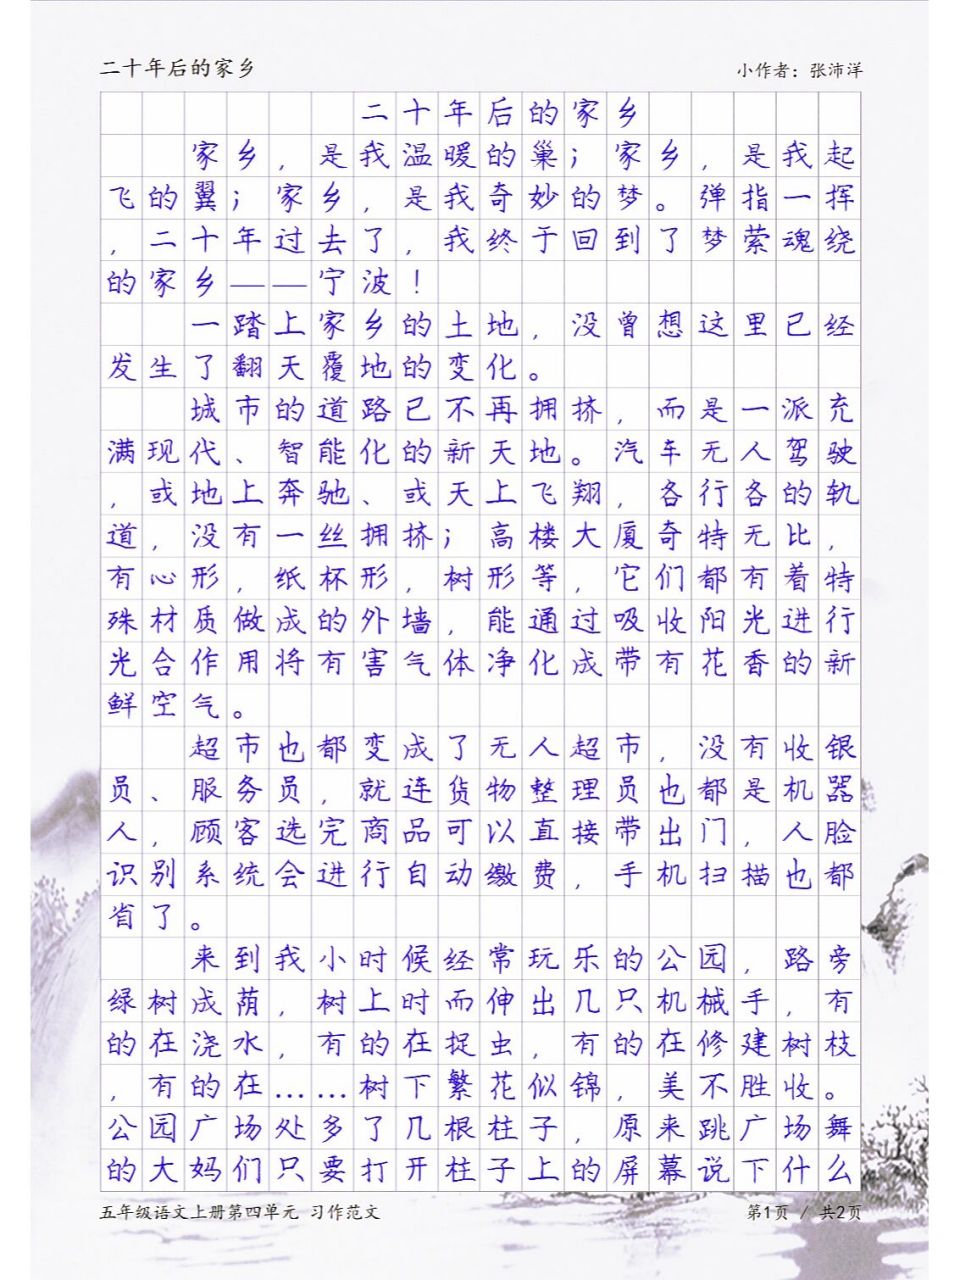 二十年后的家乡
小作者：张沛洋
二十年后的家乡
家乡，是我温暖的巢；家乡，是我起
飞的翼；家乡，是我奇妙的梦。弹指一挥
，二十年过去了，我终于回到了梦萦魂绕
的家乡——宁波！
一踏上家乡的土地，没曾想这里已经
发生了翻天覆地的变化。
城市的道路已不再拥挤，而是一派充
满现代、智能化的新天地。汽车无人驾驶
，或地上奔驰、或天上飞翔，各行各的轨
道，没有一丝拥挤；高楼大厦奇特无比，
有心形，纸杯形，树形等，它们都有着特
殊材质做成的外墙，能通过吸收阳光进行
光合作用将有害气体净化成带有花香的新
鲜空气。
超市也都变成了无人超市，没有收银
员、服务员，就连货物整理员也都是机器
人，顾客选完商品可以直接带出门，人脸
识别系统会进行自动缴费，手机扫描也都
省了。
来到我小时候经常玩乐的公园，路旁
绿树成荫，树上时而伸出几只机械手，有
的在浇水，有的在捉虫，有的在修建树枝
，有的在……树下繁花似锦，美不胜收。
公园广场处多了几根柱子，原来跳广场舞
的大妈们只要打开柱子上的屏幕说下什么
五年级语文上册第四单元 习作范文
第1页 / 共2页